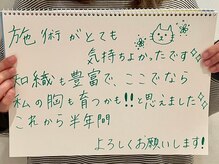 施術がとても
気持ちよかったです✨
知識も豊富で、ここでなら
私の胸も育つかも!!と思えました✨
これから半年間
よろしくお願いします!